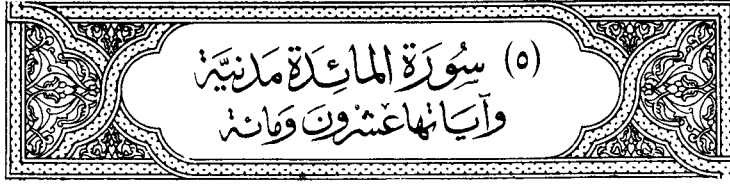 (٥) سُورَة المائِدَة مَدنيَّة
وآيَاتها عشرون وَمائة